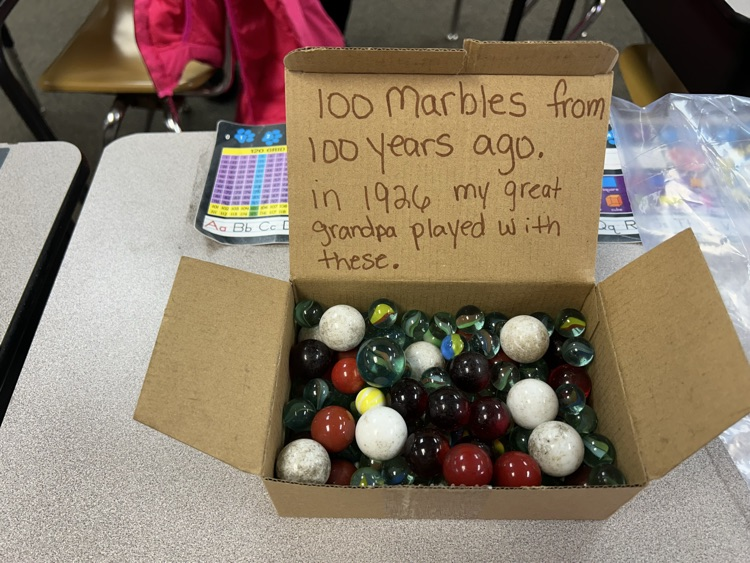 100 Marbles from
100 years ago.
in 1926 my great
grandpa played with
these.
120 GRID
Aa Bb Cc D
Qq R